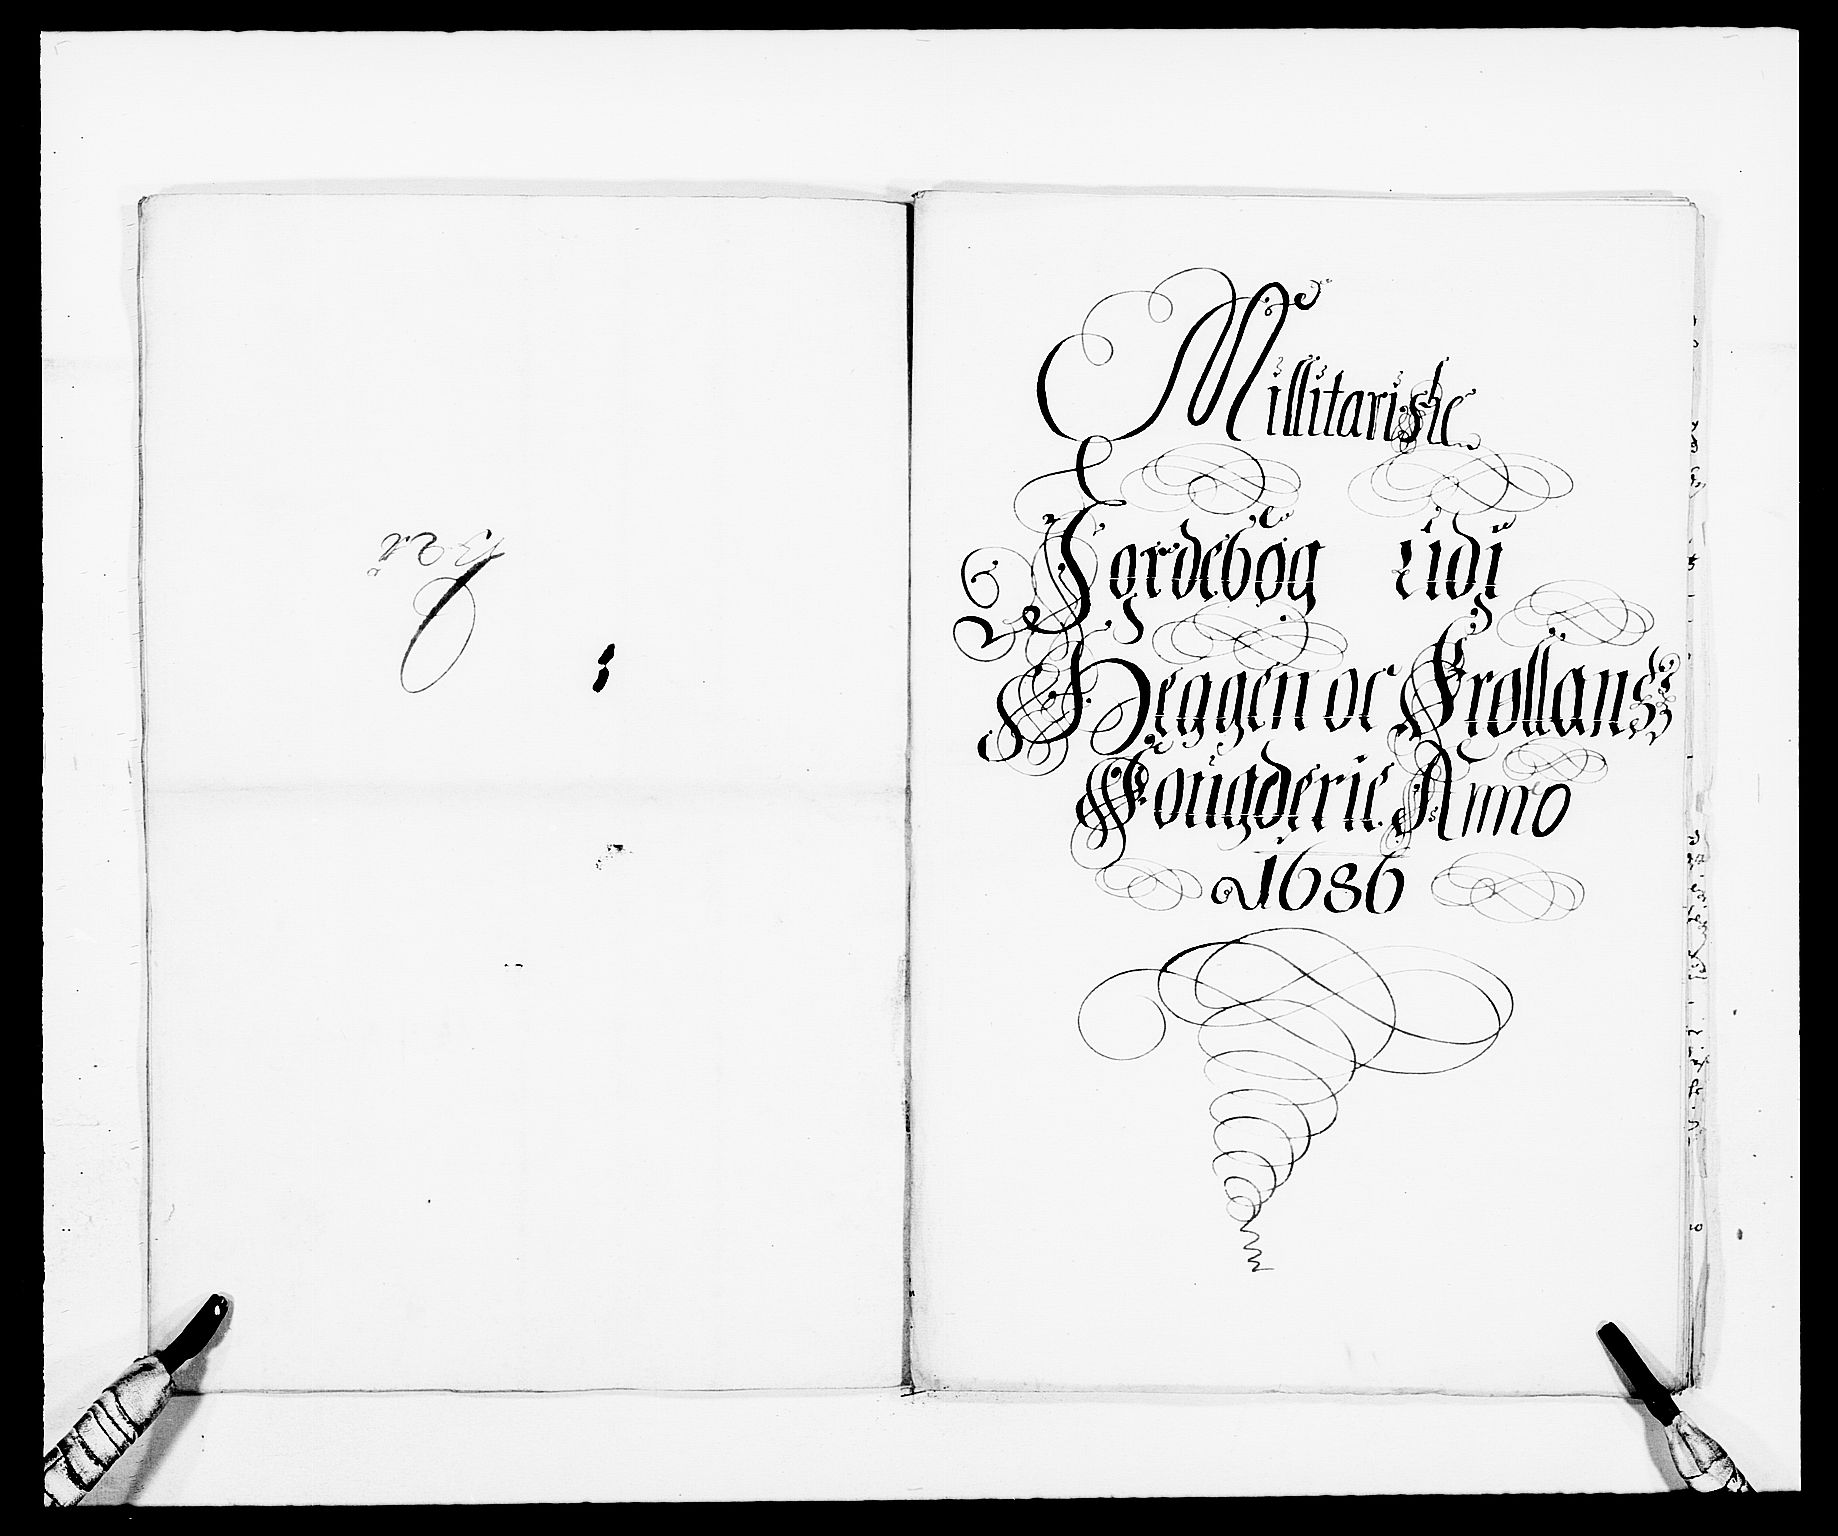 Millitariske
Jordebog udi
Heggen oc Frøllans
Fougderie Anno
1686